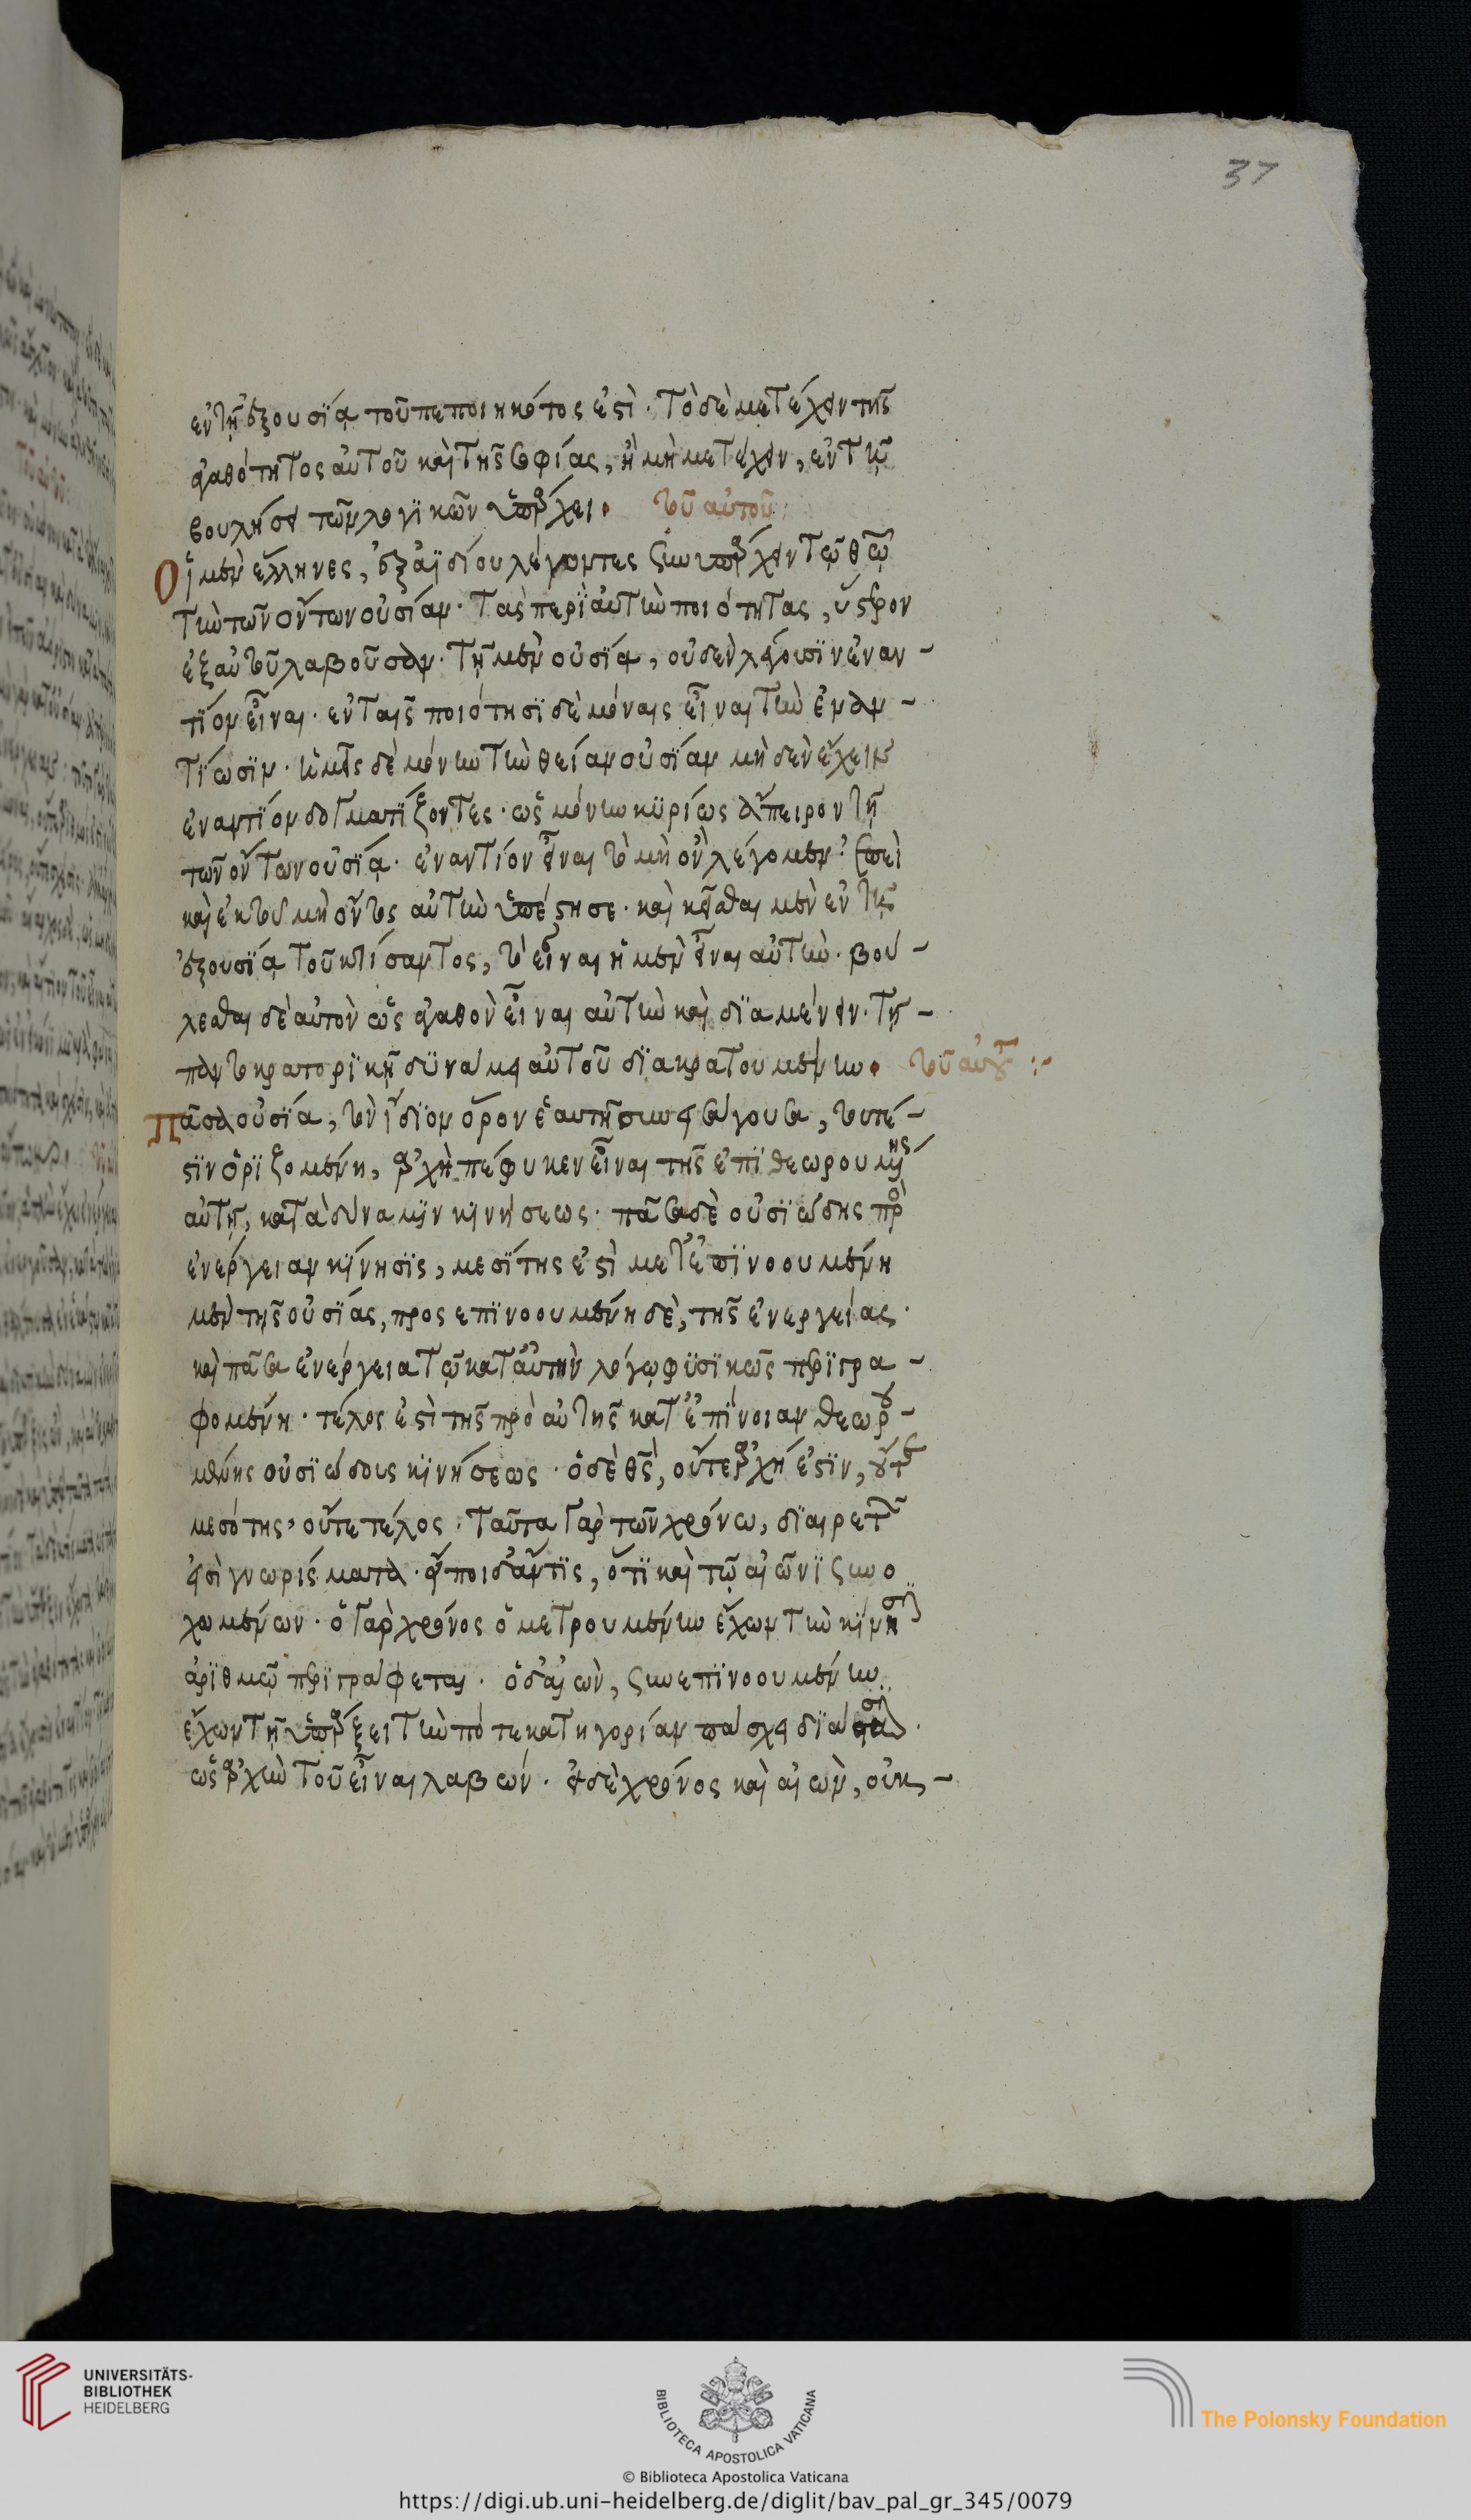 37
ἐν τῇ ἐξουσία τοῦ πεποιηκότος ἐστὶ· τὸ δὲ μετέχειν τῆς
ἀγαθότητος αὐτοῦ καὶ τῆς σοφίας, ἢ μὴ μετέχειν, ἐν τῶ
βουλήσει τῶν λογικῶν ὑπάρχει. τοῦ αὐτοῦ:
Οἱ μὲν ἕλληνες, ἐξ ἀϊδίου λέγοντες συνυπάρχειν τῷ θεῷ
τὴν τῶν ὄντων οὐσίαν· τὰς περὶ αὐτὴν ποιότητας, ὕστερον
ἐξ αὐτοῦ λαβοῦσαν· τῇ μὲν οὐσίᾳ, οὐδὲν λέγουσιν ἐναν-
τίον εἶναι· ἐν ταῖς ποιότησι δὲ μόναις εἶναι τὴν ἐναν-
τίωσιν· ἡμεῖς δὲ μόνην τὴν θείαν οὐσίαν μηδὲν ἔχειν
ἐναντίον δογματίζοντες· ὡς μόνην κυρίως ἄπειρον τῇ
τῶν ὄντων οὐσίᾳ· ἐναντίον εἶναι τὸ μὴ ὂν λέγομεν· ἐπεὶ
καὶ ἐκ τοῦ μὴ ὄντος αὐτὴν ὑπέστησε· καὶ κεῖσθαι μὲν ἐν τῇ
ἐξουσίᾳ τοῦ κτίσαντος, τὸ εἶναι ἢ μὲν εἶναι αὐτὴν· βού-
λεσθαι δὲ αὐτὸν ὡς ἀγαθὸν εἶναι αὐτὴν καὶ διαμένειν· τῇ-
παντοκρατορικῇ δυνάμει αὐτοῦ διακρατουμένην. τοῦ αὐτοῦ:·
Πᾶσα οὐσία, τὸν ἴδιον ὅρον ἑαυτῇ συνεισάγουσα, τουτέ-
στιν ὁριζομένη, ἀρχὴ πέφυκεν εἶναι τῆς ἐπιθεωρουμένης
αὐτῇ, κατὰ δύναμιν κινήσεως· πᾶσα δὲ οὐσιώδης πρὸ
ἐνέργειαν κίνησις, μεσίτης ἐστὶ μετεπινοουμένη
μὲν τῆς οὐσίας, προσεπινοουμένη δὲ, τῆς ἐνεργείας.
καὶ πᾶσα ἐνέργεια τῷ κατ' αὐτὴν λόγῳ φυσικῶς περιγρα-
φομένη· τέλος ἐστὶ τῆς πρὸ αὐτῆς κατ' ἐπίνοιαν θεωρου-
μένης οὐσιώδους κινήσεως· ὁ δὲ θεὸς, οὔτε ἀρχή ἐστιν, οὔτε
μεσότης, οὔτε τέλος· ταῦτα γὰρ τῶν χρόνω, διαιρετῶν
εἰσὶ γνωρίσματα· εἴποι δ' ἄν τις, ὅτι καὶ τῷ αἰῶνι συνο
χωμένων· ὁ γὰρ χρόνος ὁ μετρουμένην ἔχων τὴν κίνησιν
ἀριθμῷ περιγράφεται· ὁ δ' αἰὼν, συνεπινοουμένην
ἔχων τῇ ὑπάρξει τὴν πότε κατηγορίαν πάσχει διάστασιν.
ὡς ἀρχὴν τοῦ εἶναι λαβών· εἰ δὲ χρόνος καὶ αἰὼν, οὐκ-
UNIVERSITÄTS-
BIBLIOTHEK
HEIDELBERG
BIBLIOTECA APOSTOLICA VATICANA
The Polonsky Foundation
© Biblioteca Apostolica Vaticana
https://digi.ub.uni-heidelberg.de/diglit/bav_pal_gr_345/0079